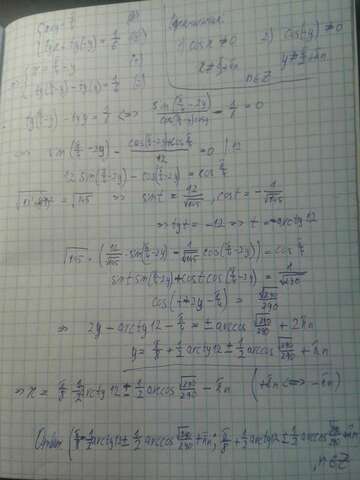 { x+y = π/4
{ tgx + tg(-y) = 1/6 (2)
Ограничения
1) cosx ≠ 0 2) cos(-y) ≠ 0
x ≠ π/2+πn y ≠ π/2+πn
n∈Z
=> { x = π/4 - y
{ tg(π/4-y) - tgy = 1/6
tg(π/4-y) - tgy = 1/6 <=> sin(π/4-2y)/cos(π/4-y)cosy - 1/6 = 0
=> sin(π/4-2y) - cos(π/4-2y)+cosπ/4 / 12 = 0 | 12
12 sin(π/4-2y) - cos(π/4-2y) = cos π/4
= √145 => sint = 12/√145, cost = -1/√145
=> tgt = -12 => t = -arctg12
√145 · (12/√145 · sin(π/4-2y) - 1/√145 cos(π/4-2y)) = cos π/4
sint sin(π/4-2y) + cost cos(π/4-2y) = 1/√290
cos(t+2y-π/4) = √290/290
=> 2y - arctg12 - π/4 = ± arccos √290/290 + 2πn
y = π/8 + 1/2 arctg12 ± 1/2 arccos √290/290 + πn
=> x = π/8 - 1/2 arctg12 ± 1/2 arccos √290/290 - πn (+πn <=> -πn)
Ответ: {π/8 - 1/2 arctg12 ± 1/2 arccos √290/290 + πn; π/8 + 1/2 arctg12 ± 1/2 arccos √290/290 + πn}
n∈Z